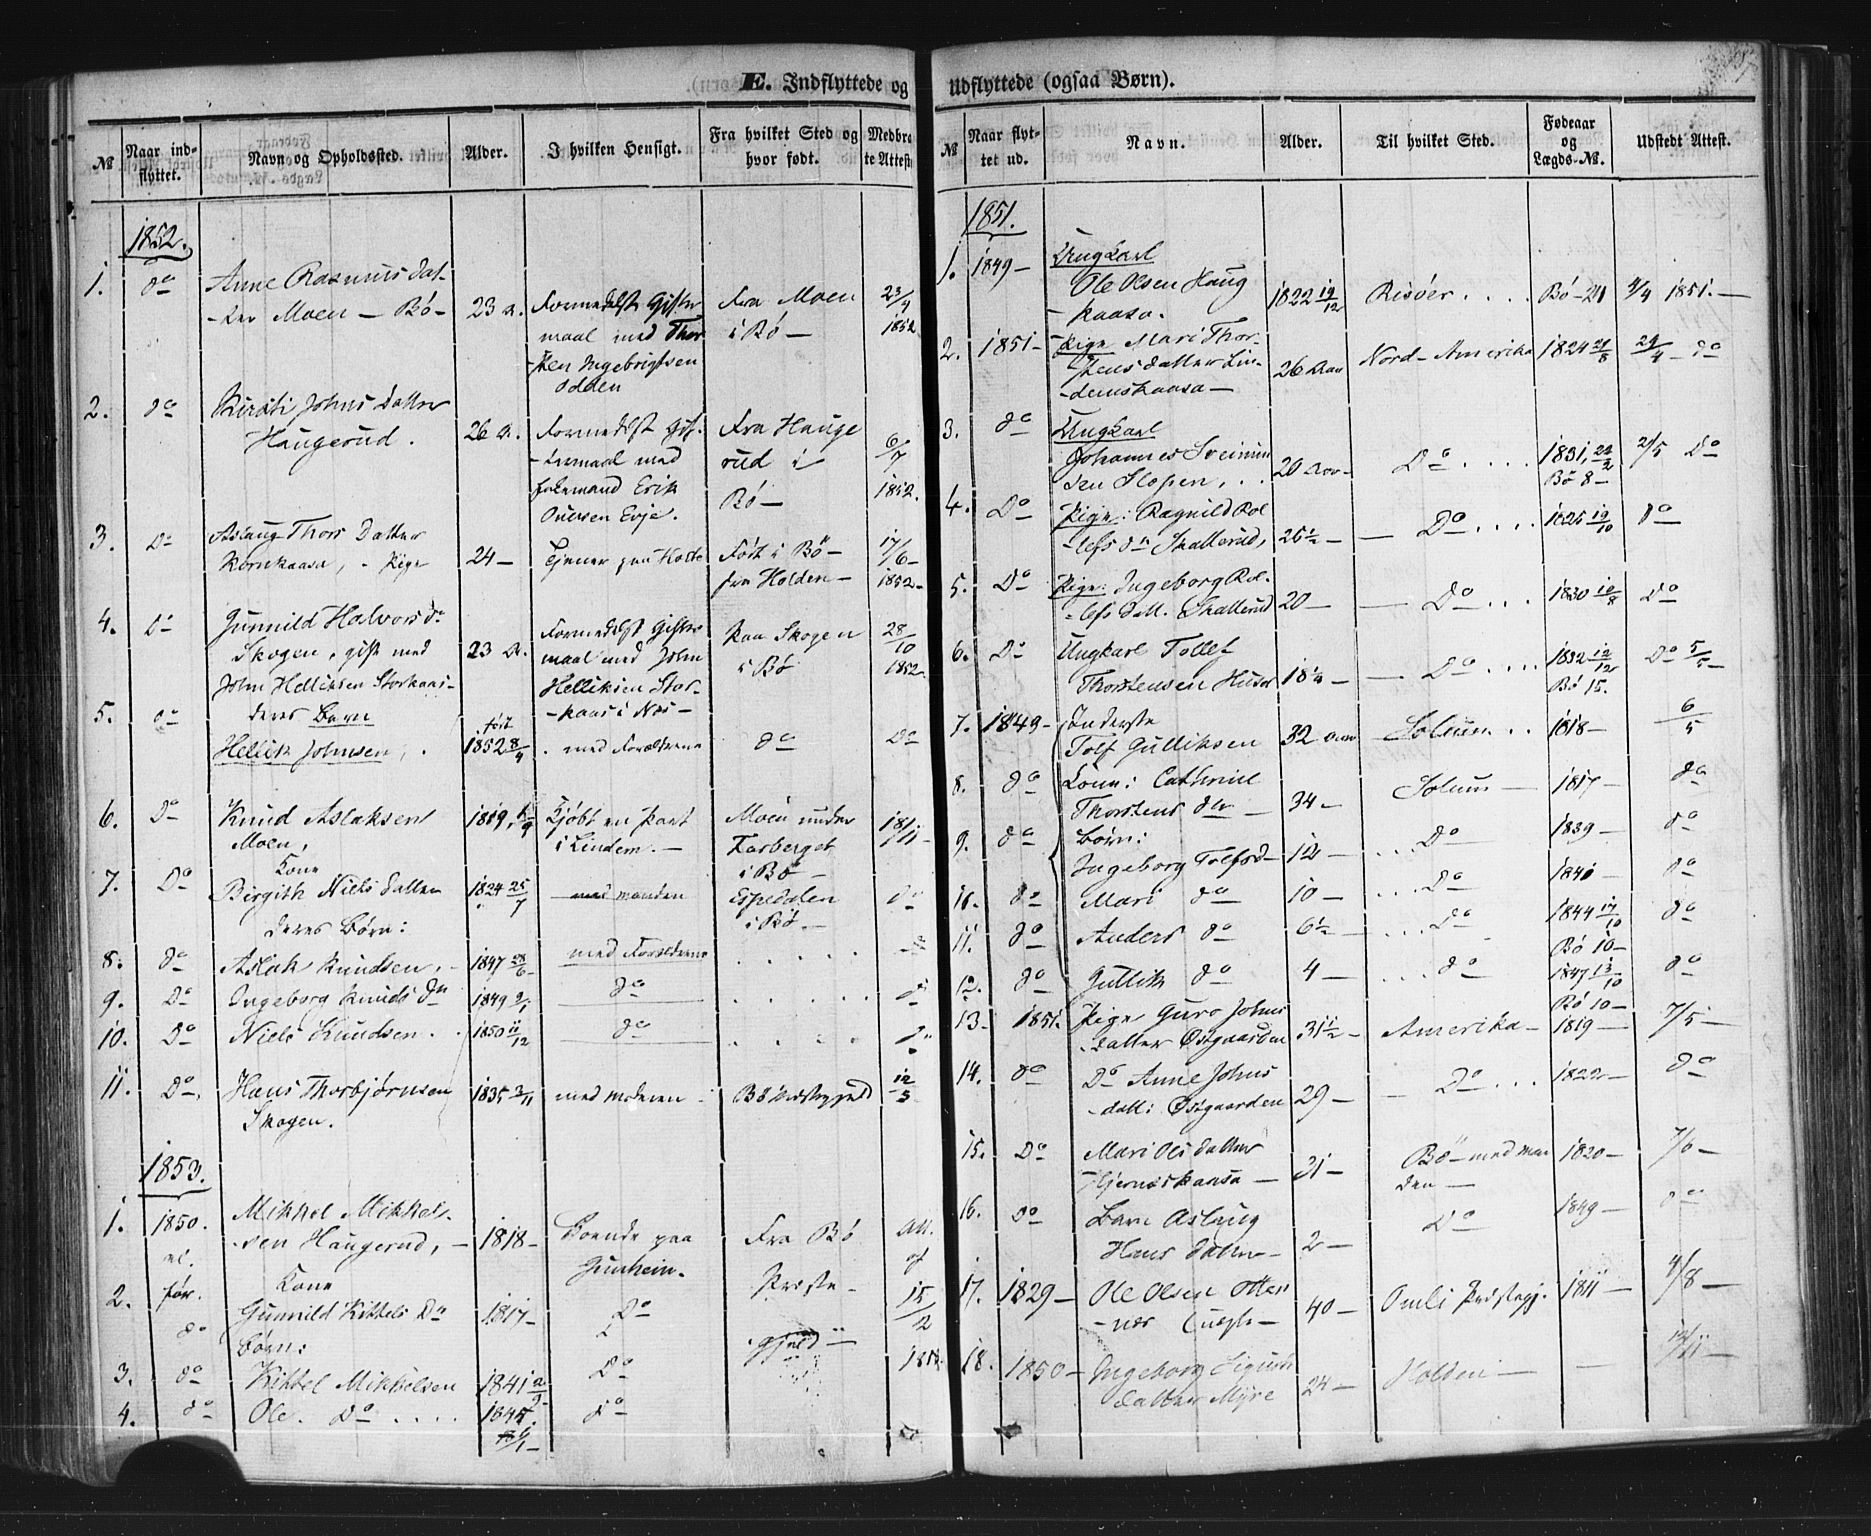 E. Indflyttede og
№
Naar ind-
flyttet.
Navn og Opholdssted.
Alder.
I hvilken Hensigt.
Fra hvilket Sted og
hvor født.
Medbra-
te Attest
1852.
1. do Anne Rasmusdat-
-ter Moen - Bö- 23 a. Formedelst Gifter
maal med Thor
-sten Ingebrigtsen
Odden Fra Moen
i Bö - 23/4 1852
2. do Kirsti Johns Datter
Haugerud. 26 a. Formedelst Gif-
-termaal med
Enkemand Erik
Evje. Fra Hauge
rud i
Bö - 6/7 1852.
3. Do Aslaug Thors Datter
Kornkaasa, - Pige 24 - Tjener paa Födt i Bö -
fra Holden - 17/6 - 1852 -
4. Do Gunnild Halvors dr
Skogen, gift med
John Helliksen Storkaas- 23 a. Formedelst Gifter
maal med John
Helliksen Stor-
-kaas i Næs - paa Skogen
i Bö 28/10 1852.
5. do deres Barn
Hellik Johnsen, . født
1852 8/4 . med Forældrene do Do
6. Do Knud Aslaksen
Moen, 1819, Kjöbt en Part
i Lindem. - Moen under
i Bö - 18/11 -
7. Do Kone
Birgith Niels datter 1824 25/7 - med manden Espedalen
i Bö. - do
deres Börn:
8. do Aslak Knudsen, - 1847 28/6 - med Forældrene . . . . .
9. Do Ingeborg Knuds dr 1849 2/1 do . . . . do
10. Do Niels Knudsen. . 1850 11/12 do . . . .
11. Do. Hans Thorbjörnsen
Skogen. 1835 3/11 med moderen - Bö Præstegjeld 12/5
1853.
1. 1850. Mikkel Mikkels-
-sen Haugerud, - 1818 - Boende paa
Gunheim. Fra Bö
Præste- Att.
af
2. før. do Kone
Gunnild Kittels Dr 1817 - Do gjeld - 15/12
Börn:
3. do Kittel Mikkelsen 1841 2/9 Do
4. do Ole. Do . . . . 1845. do
Udflyttede (ogsaa Børn).
№
Naar flyt-
tet ud.
Navn.
Alder.
Til hvilket Sted.
Fødeaar
og
Lægds-№.
Udstedt Attest.
1851.
1. 1849 - Ungkarl
Ole Olsen Haug
-kaasa. 1822 19/12 Risöer . . . . Bö - 21 4/4 1851. -
2. 1851 - Pige Mari Thor-
stensdatter Lin-
-demskaasa - 26 Aar Nord-Amerika 1824 24/8 29/4 - do
3. do Ungkarl
Johannes Sveinun
sen . . 20 Aar - Do . . . . 1831, 22/2
Bö 8 - 2/5 Do
4. Do Pige: Ragnild Rol
-lefs dr Skatterud, 25 1/2 - - Do . . . . 1825 19/10 do
5. Do Pige: Ingeborg Rol-
-lefs datt. Skatterud 20 - - Do . . . 1830 10/8 Do
6. Do Ungkarl Tollef
Thorstensen 18 1/4 - - Do . . . . 1832 12/12
Bö 15. Do 5/5 -
7. 1849 - Inderste
Tolf Gulliksen 32 Aar Solum . . 1818 - 6/5
8. do Kone: Cathrine
Thorstens dtr 34 - Solum - 1817 - do
9. do Börn:
Ingeborg Tolfsd - 12 - . . . Do 1839 - do
10. do Mari do 10 - . . . Do 1841 - do
11. do Anders do 6 1/2 - . . . Do 1844 17/10
Bö 10 - do
12. do Gullik do 4 - . . . do 1847 13/10
Bö 10 - do
13 - 1851. Pige Guro Johns
datter Östgaarden 31 1/2 - Amerika - 1819 - 7/5 -
14. do Do Anne Johns
-datt: Östgaarden 29 - - Do . . . 1822 - do
15. Do Mari Ols datter
Hjernæskaasa - 31 - Bö - med man
den - 1820 - 7/6 -
16. do Barn Aslaug
Hans datter - 2 - Do 1849 - do
17. 1829 - Ole Olsen Otter
-næs 40 - Omli Præstegj. 1811 - 4/8 -
18. 1850 - Ingeborg Sigurds
datter Myre 24 - Holden - - 13/11 -